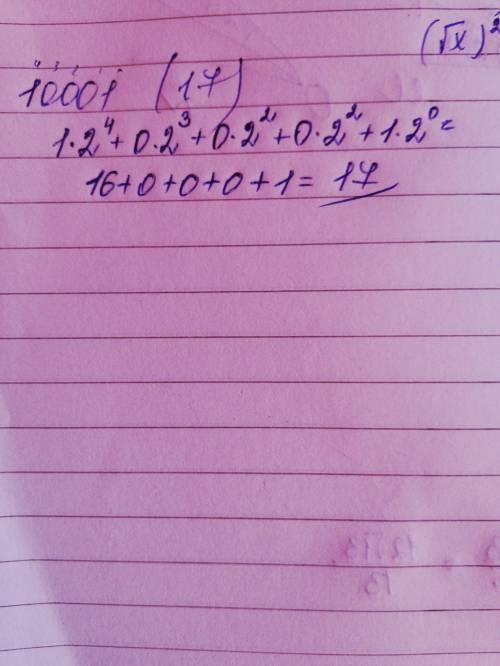 (√x)²
4 3 2 1 0
10001 (17)
1·2⁴+0·2³+0·2²+0·2²+1·2⁰=
16+0+0+0+1=17